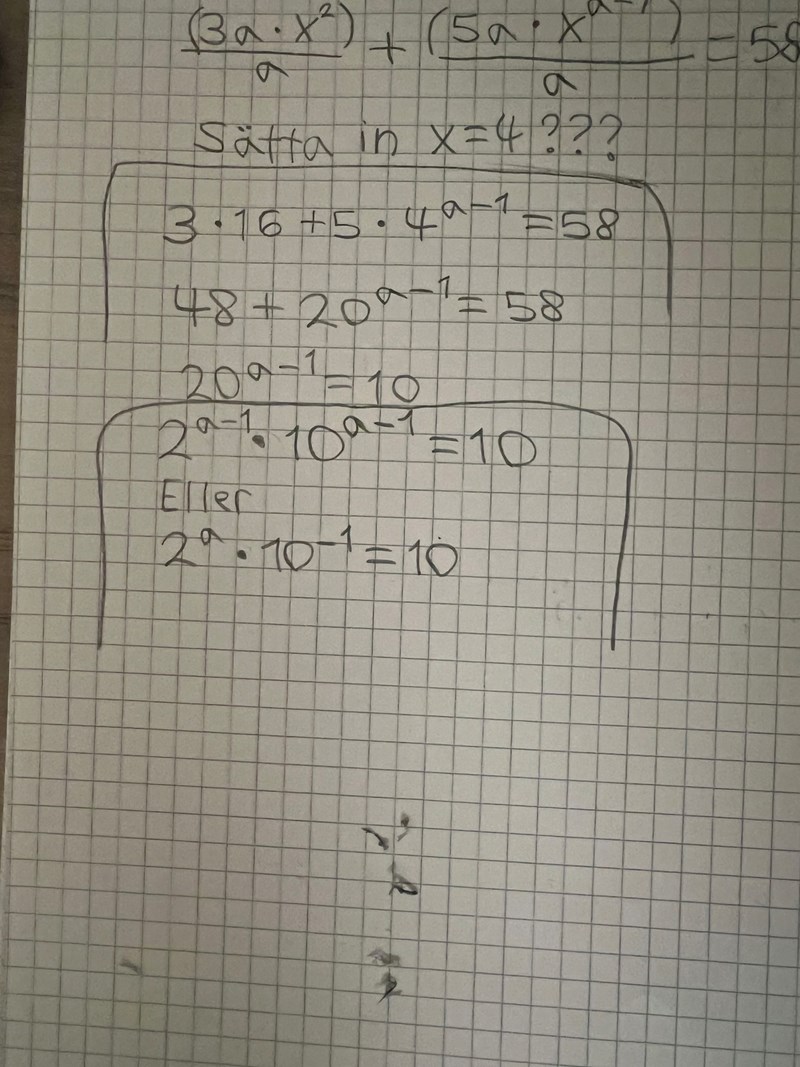 (3a·x²)/a + (5a·x^(a-1))/a = 58
Sätta in x=4???
3·16+5·4^(a-1)=58
48+20^(a-1)=58
20^(a-1)=10
2^(a-1)·10^(a-1)=10
Eller
2^a·10^(-1)=10